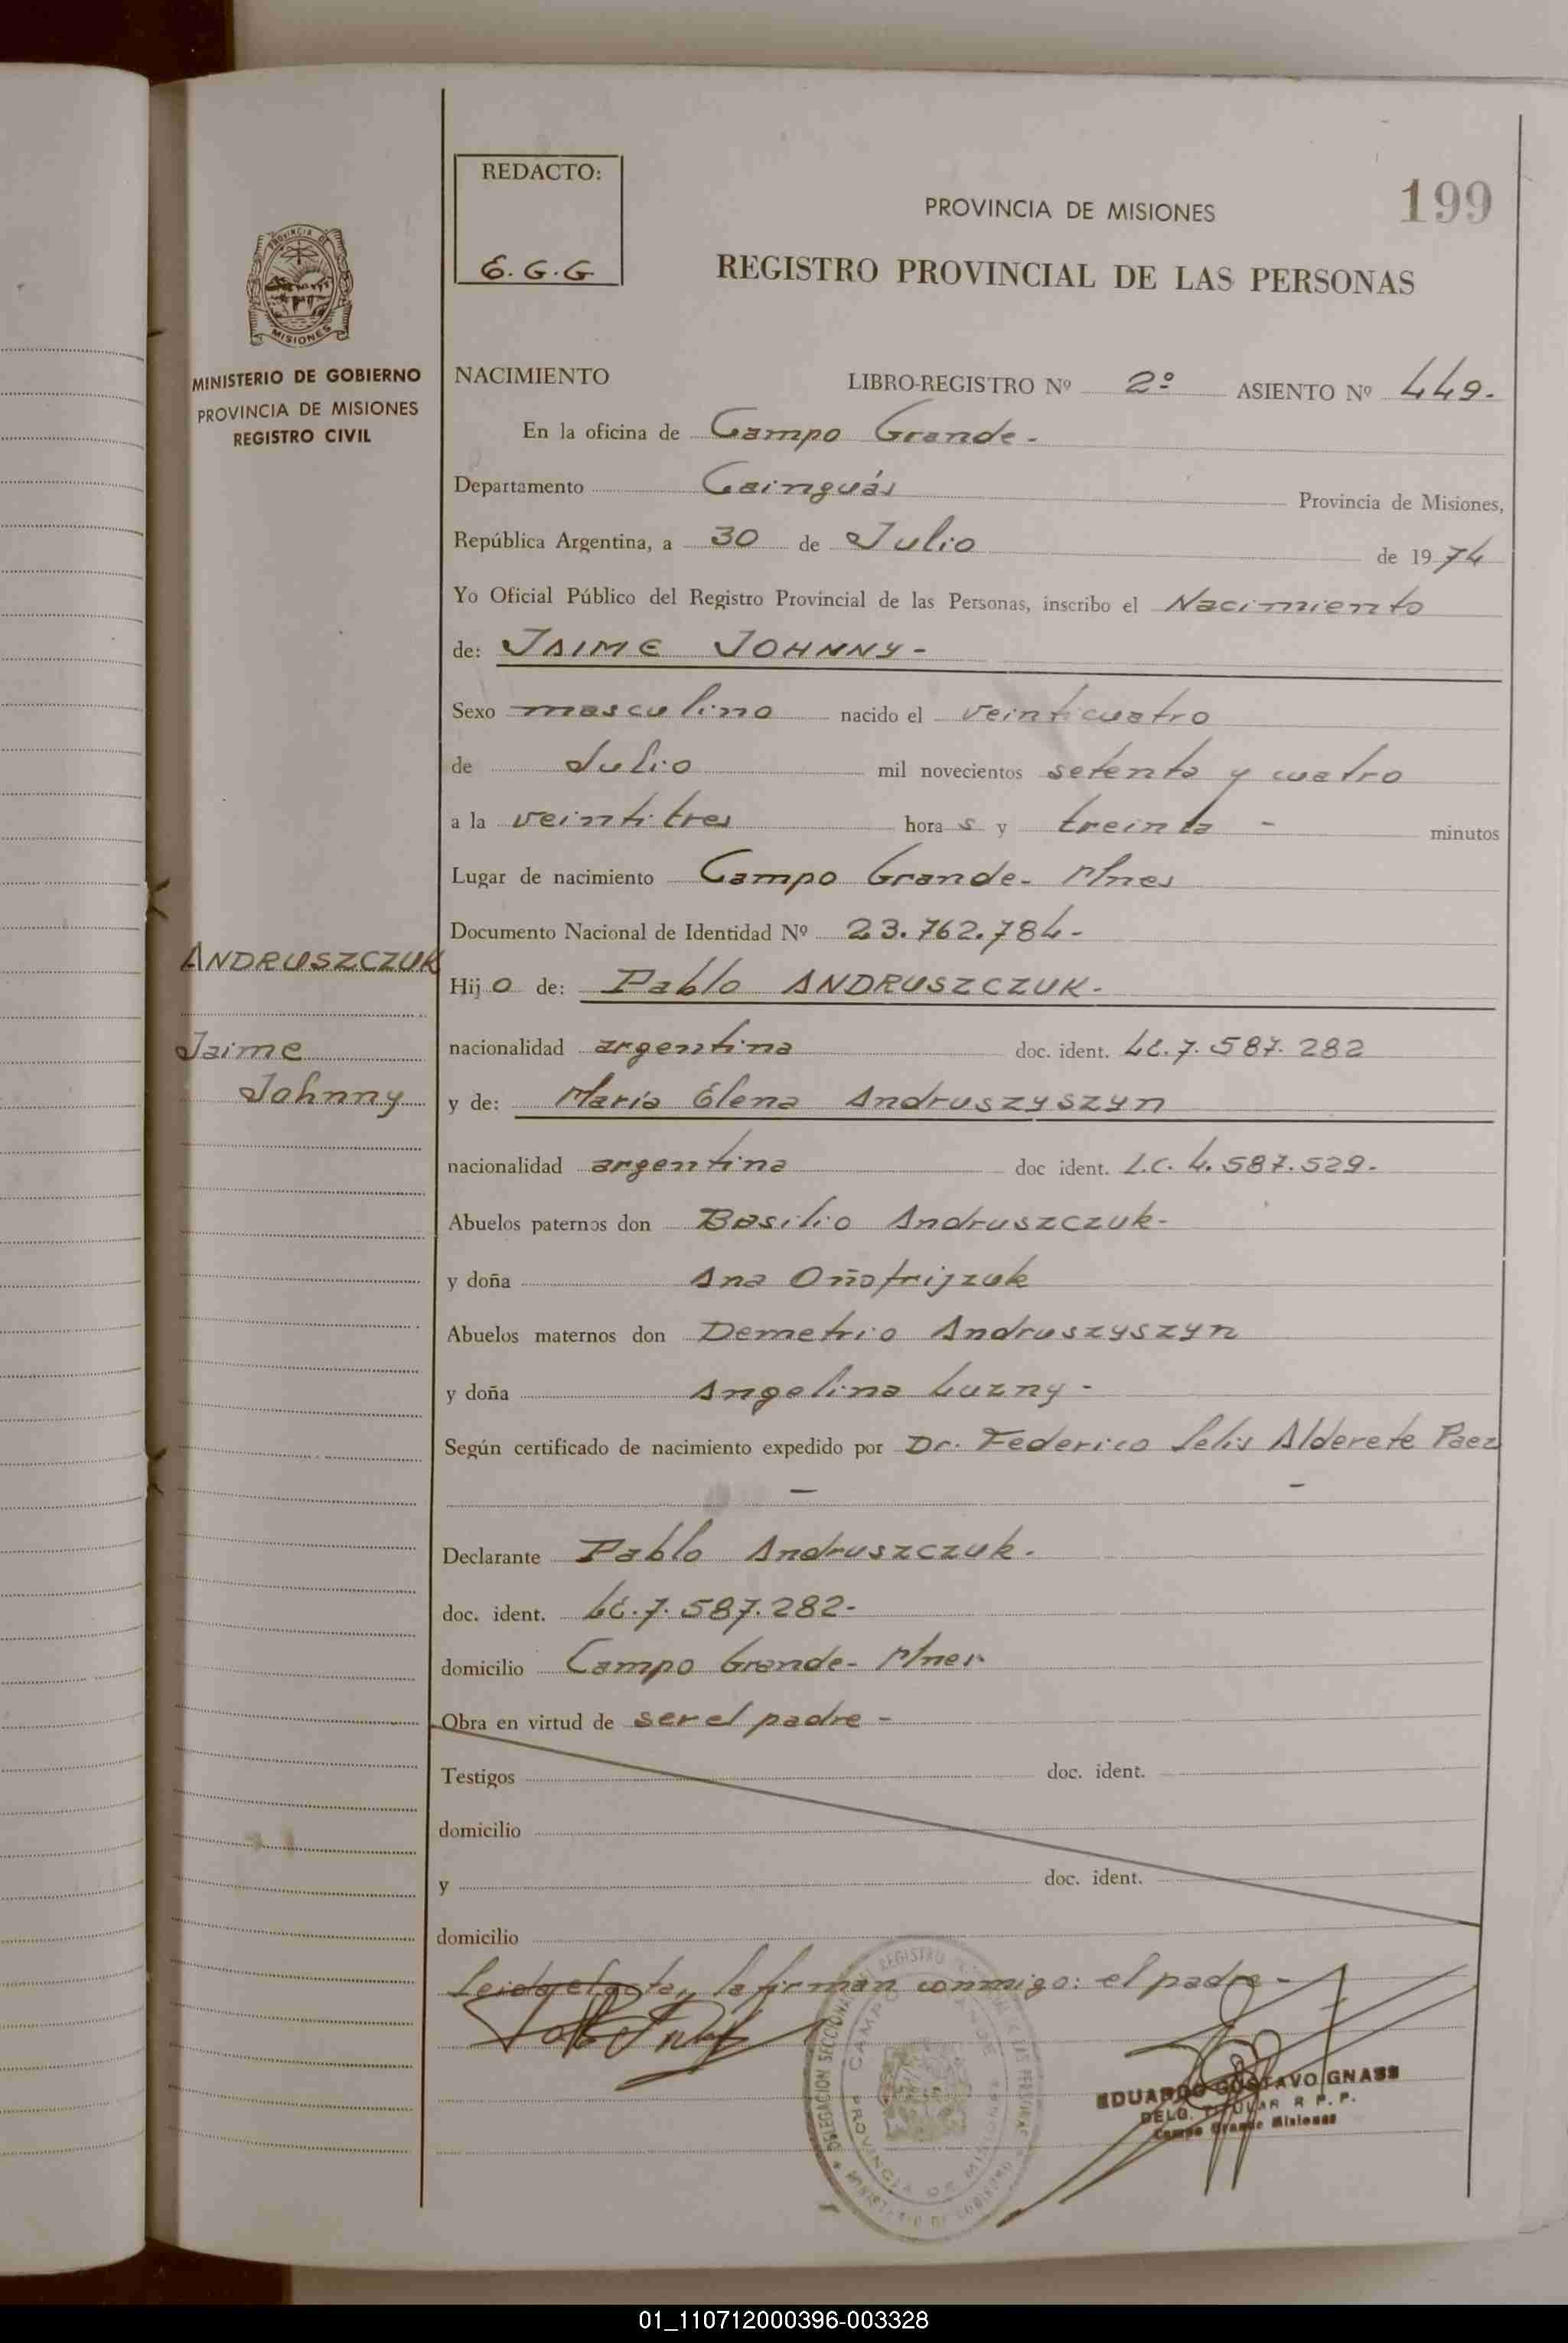 REDACTO:
E.G.G
PROVINCIA DE MISIONES
199
REGISTRO PROVINCIAL DE LAS PERSONAS
PROVINCIA DE
MISIONES
MINISTERIO DE GOBIERNO
PROVINCIA DE MISIONES
REGISTRO CIVIL
NACIMIENTO LIBRO-REGISTRO Nº 2º ASIENTO Nº 449.
En la oficina de Campo Grande-
Departamento Cainguás Provincia de Misiones,
República Argentina, a 30 de Julio de 1974
Yo Oficial Público del Registro Provincial de las Personas, inscribo el Nacimiento
de: JAIME JOHNNY-
Sexo masculino nacido el veinticuatro
de Julio mil novecientos setenta y cuatro
a la veintitres hora s y treinta - minutos
Lugar de nacimiento Campo Grande- Mnes
Documento Nacional de Identidad Nº 23.762.784-
ANDRUSZCZUK
Jaime
Johnny
Hij o de: Pablo ANDRUSZCZUK-
nacionalidad argentina doc. ident. LE.7.587.282
y de: María Elena Andruszyszyn
nacionalidad argentina doc ident. L.C. 4.587.529.
Abuelos paternos don Basilio Andruszczuk-
y doña Ana Oñofrijzuk
Abuelos maternos don Demetrio Andruszyszyn
y doña Angelina Luzny-
Según certificado de nacimiento expedido por Dr. Federico Lelis Alderete Paez
- -
Declarante Pablo Andruszczuk.
doc. ident. LE.7.587.282-
domicilio Campo Grande- Mnes.
Obra en virtud de ser el padre-
Testigos doc. ident.
domicilio
y doc. ident.
domicilio
Leida el acta, la firman conmigo: el padre-
DELEGACION SECCIONAL REGISTRO PROVINCIAL DE LAS PERSONAS
CAMPO GRANDE
PROVINCIA DE MISIONES
MINISTERIO DE GOBIERNO
EDUARDO GUSTAVO GNASS
DELG. TITULAR R.P.P.
Campo Grande Misiones
01_110712000396-003328